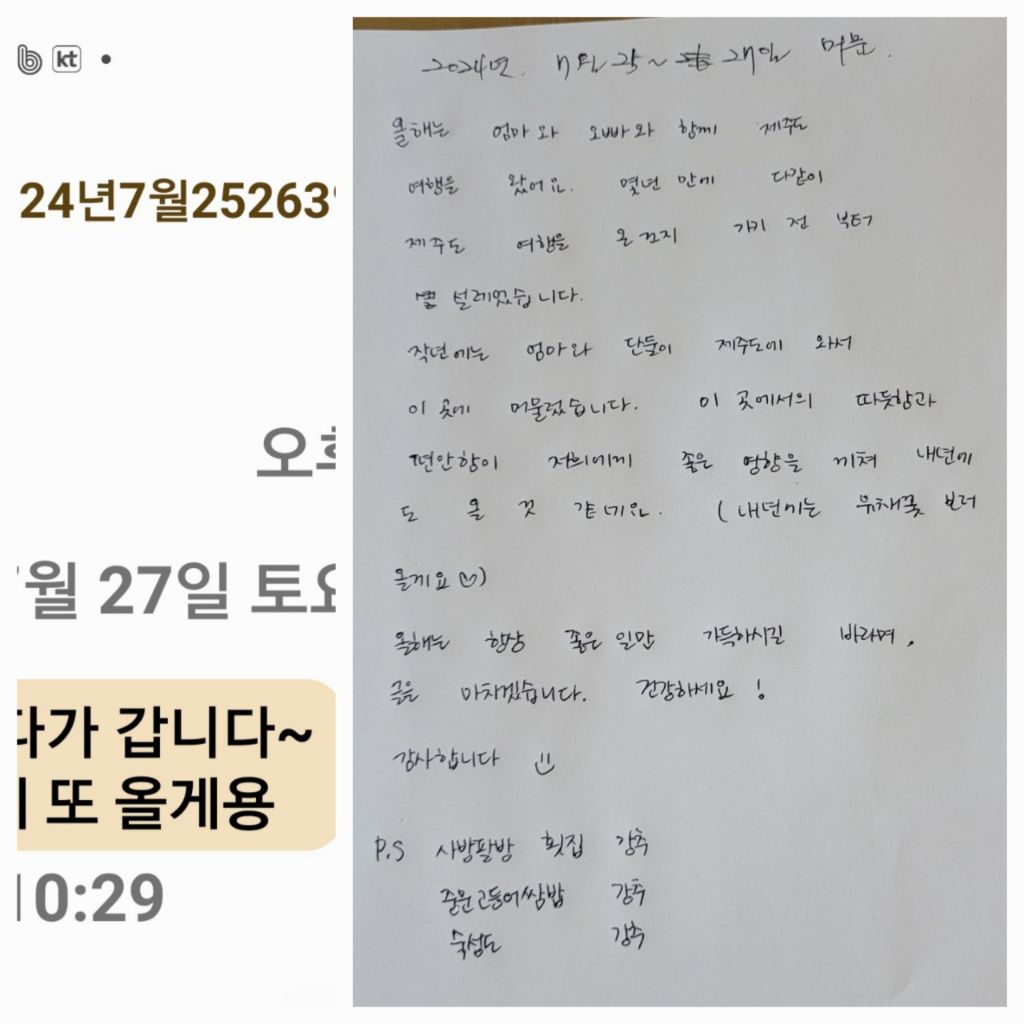 kt
24년7월25263
오후
7월 27일 토요
다가 갑니다~
또 올게용
10:29
2024년. 7월 25~ 27일 머문.
올해는 엄마와 오빠와 함께 제주도
여행을 왔어요. 몇년 만에 다같이
제주도 여행을 온건지 가기 전 부터
설레었습니다.
작년에는 엄마와 단둘이 제주도에 와서
이 곳에 머물렀습니다. 이 곳에서의 따듯함과
편안함이 저희에게 좋은 영향을 끼쳐 내년에
도 올 것 같네요. (내년에는 유채꽃 보러
올게요♡)
올해는 항상 좋은 일만 가득하시길 바라며,
글을 마치겠습니다. 건강하세요!
감사합니다
P.S 사방팔방 횟집 강추
중문고등어쌈밥 강추
숙성도 강추